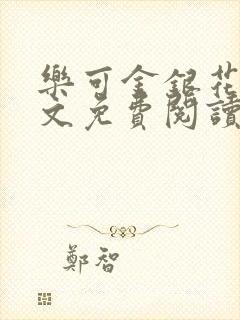 樂可金銀花
文免費閱讀
鄭智